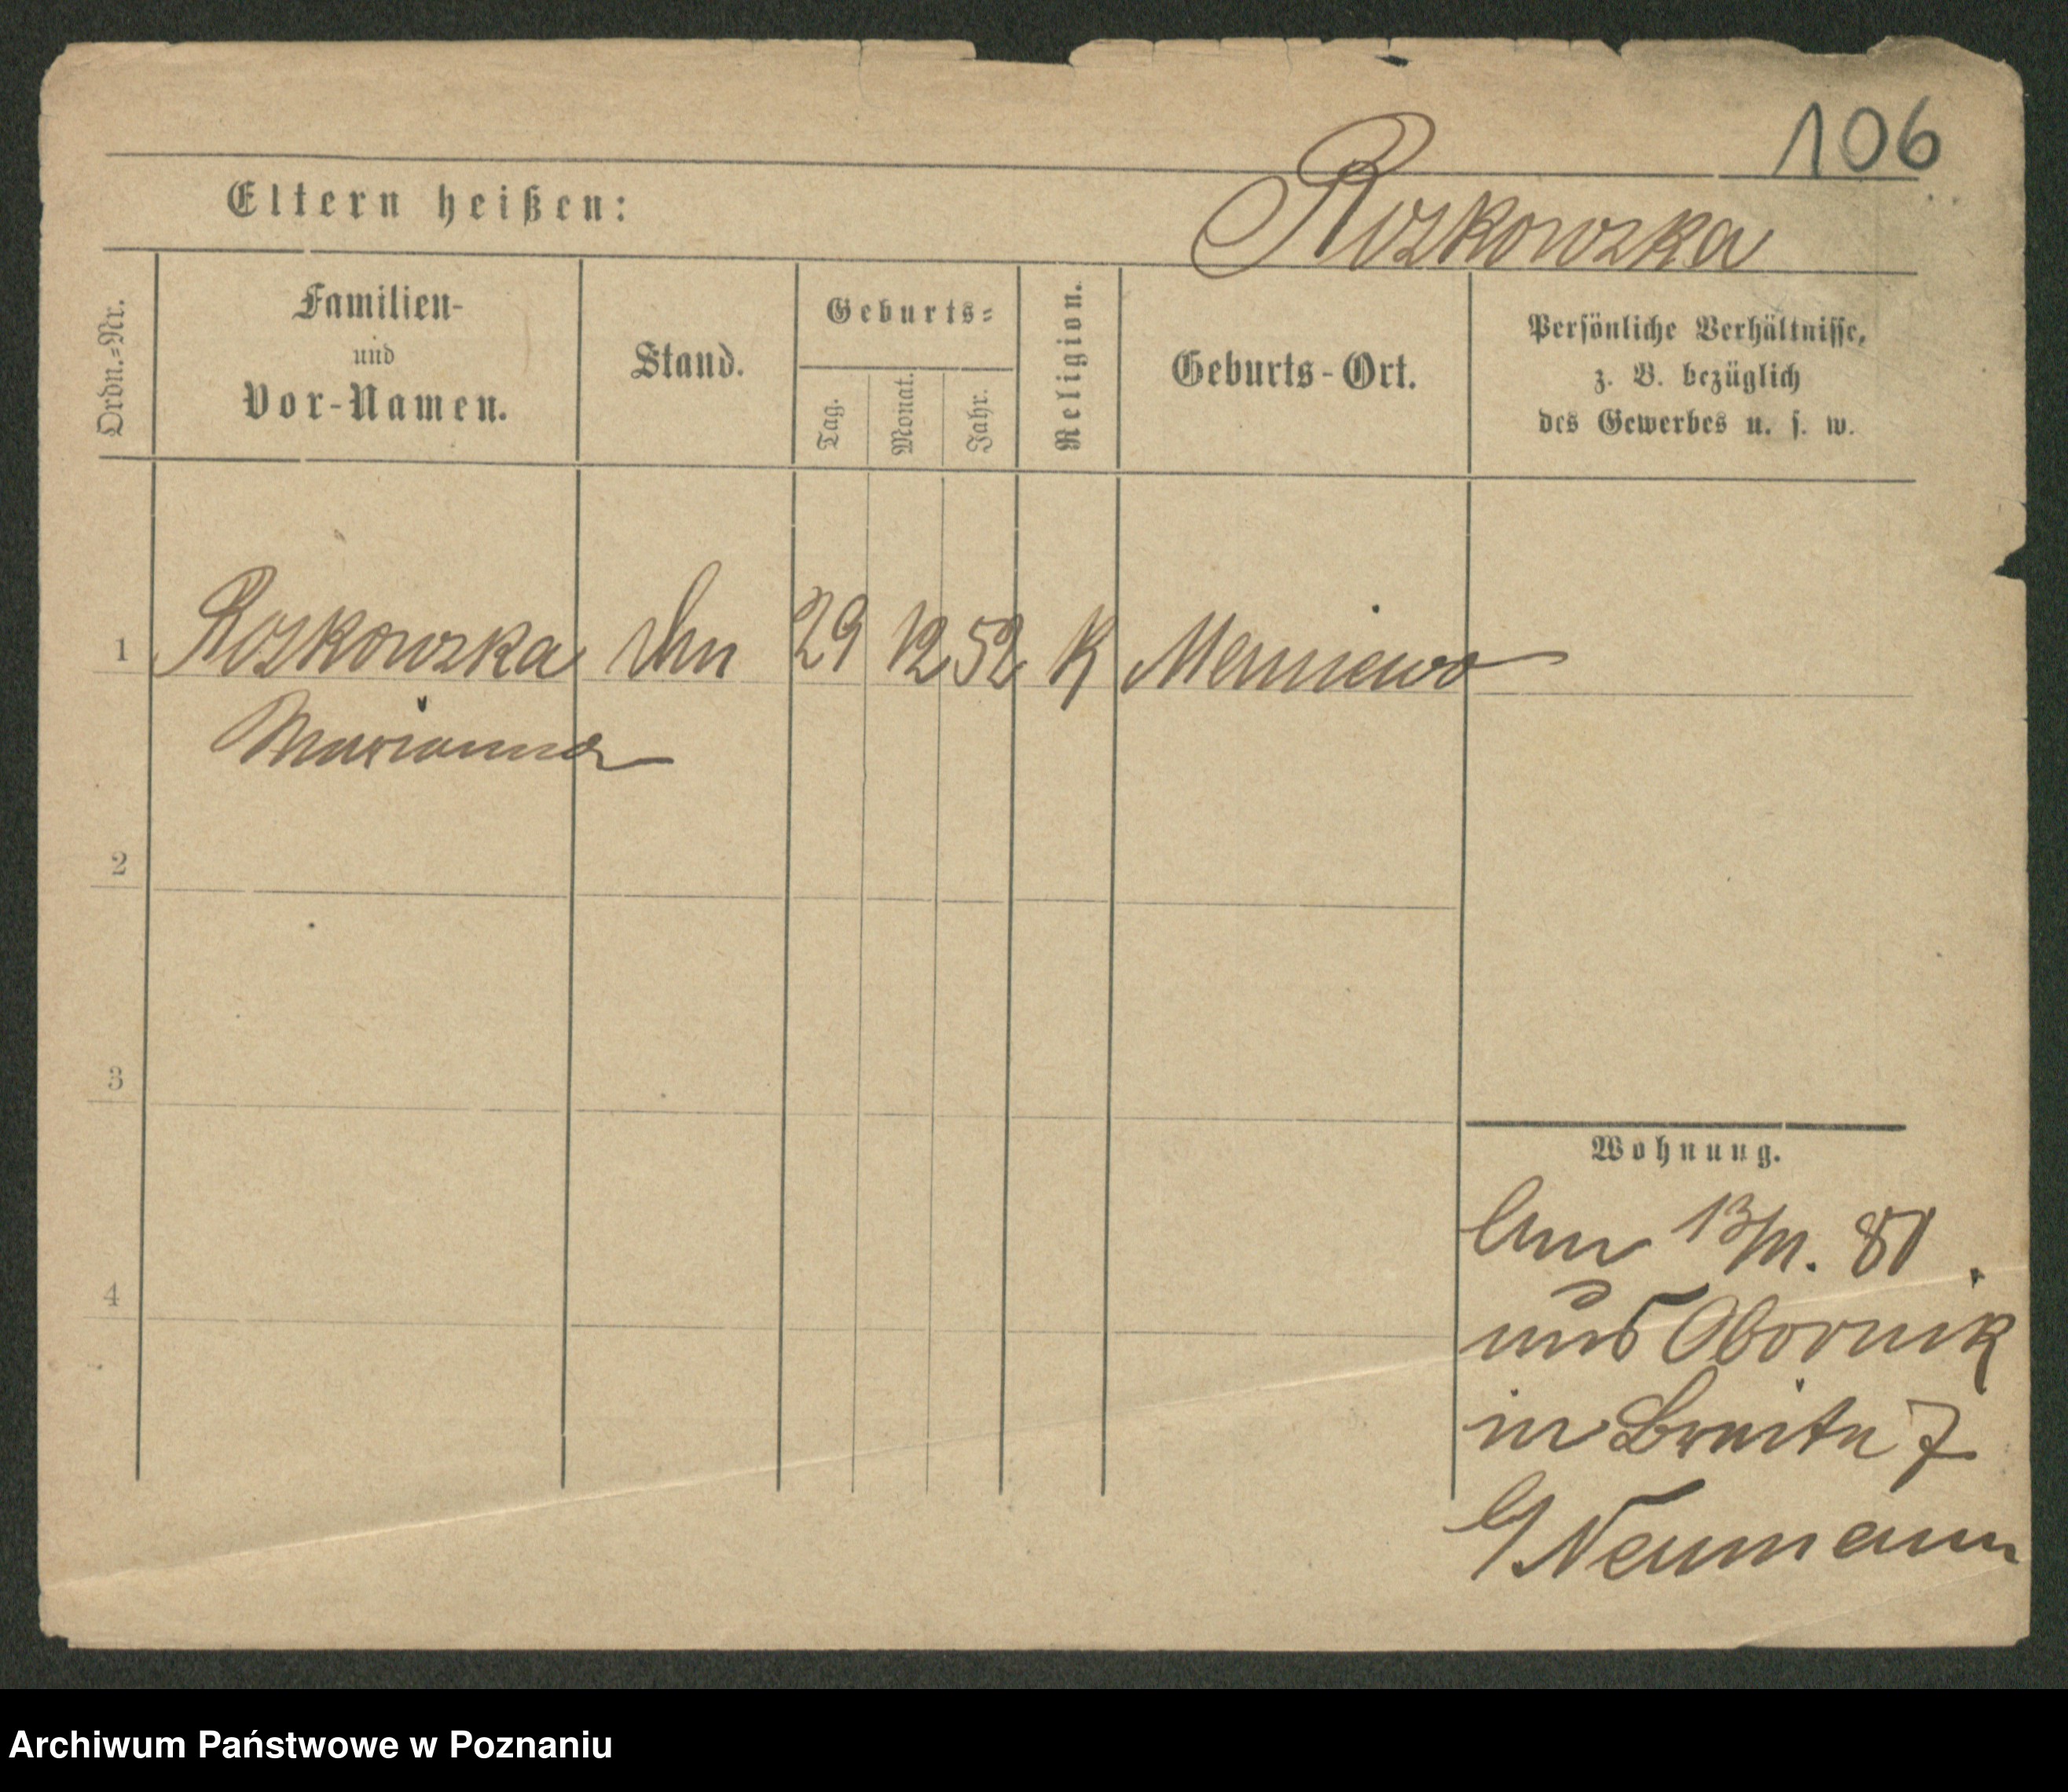 106
Eltern heißen:
Roskowska
Ordn.-Nr.
Familien-
und
Vor-Namen.
Stand.
Geburts-
Tag.
Monat.
Jahr.
Religion.
Geburts-Ort.
Persönliche Verhältnisse,
z. B. bezüglich
des Gewerbes u. s. w.
1 Roskowska 29 12 52 K
Marianna
2
3
4
Wohnung.
81
aus Obornik
in Breite 7
Neumann
Archiwum Państwowe w Poznaniu